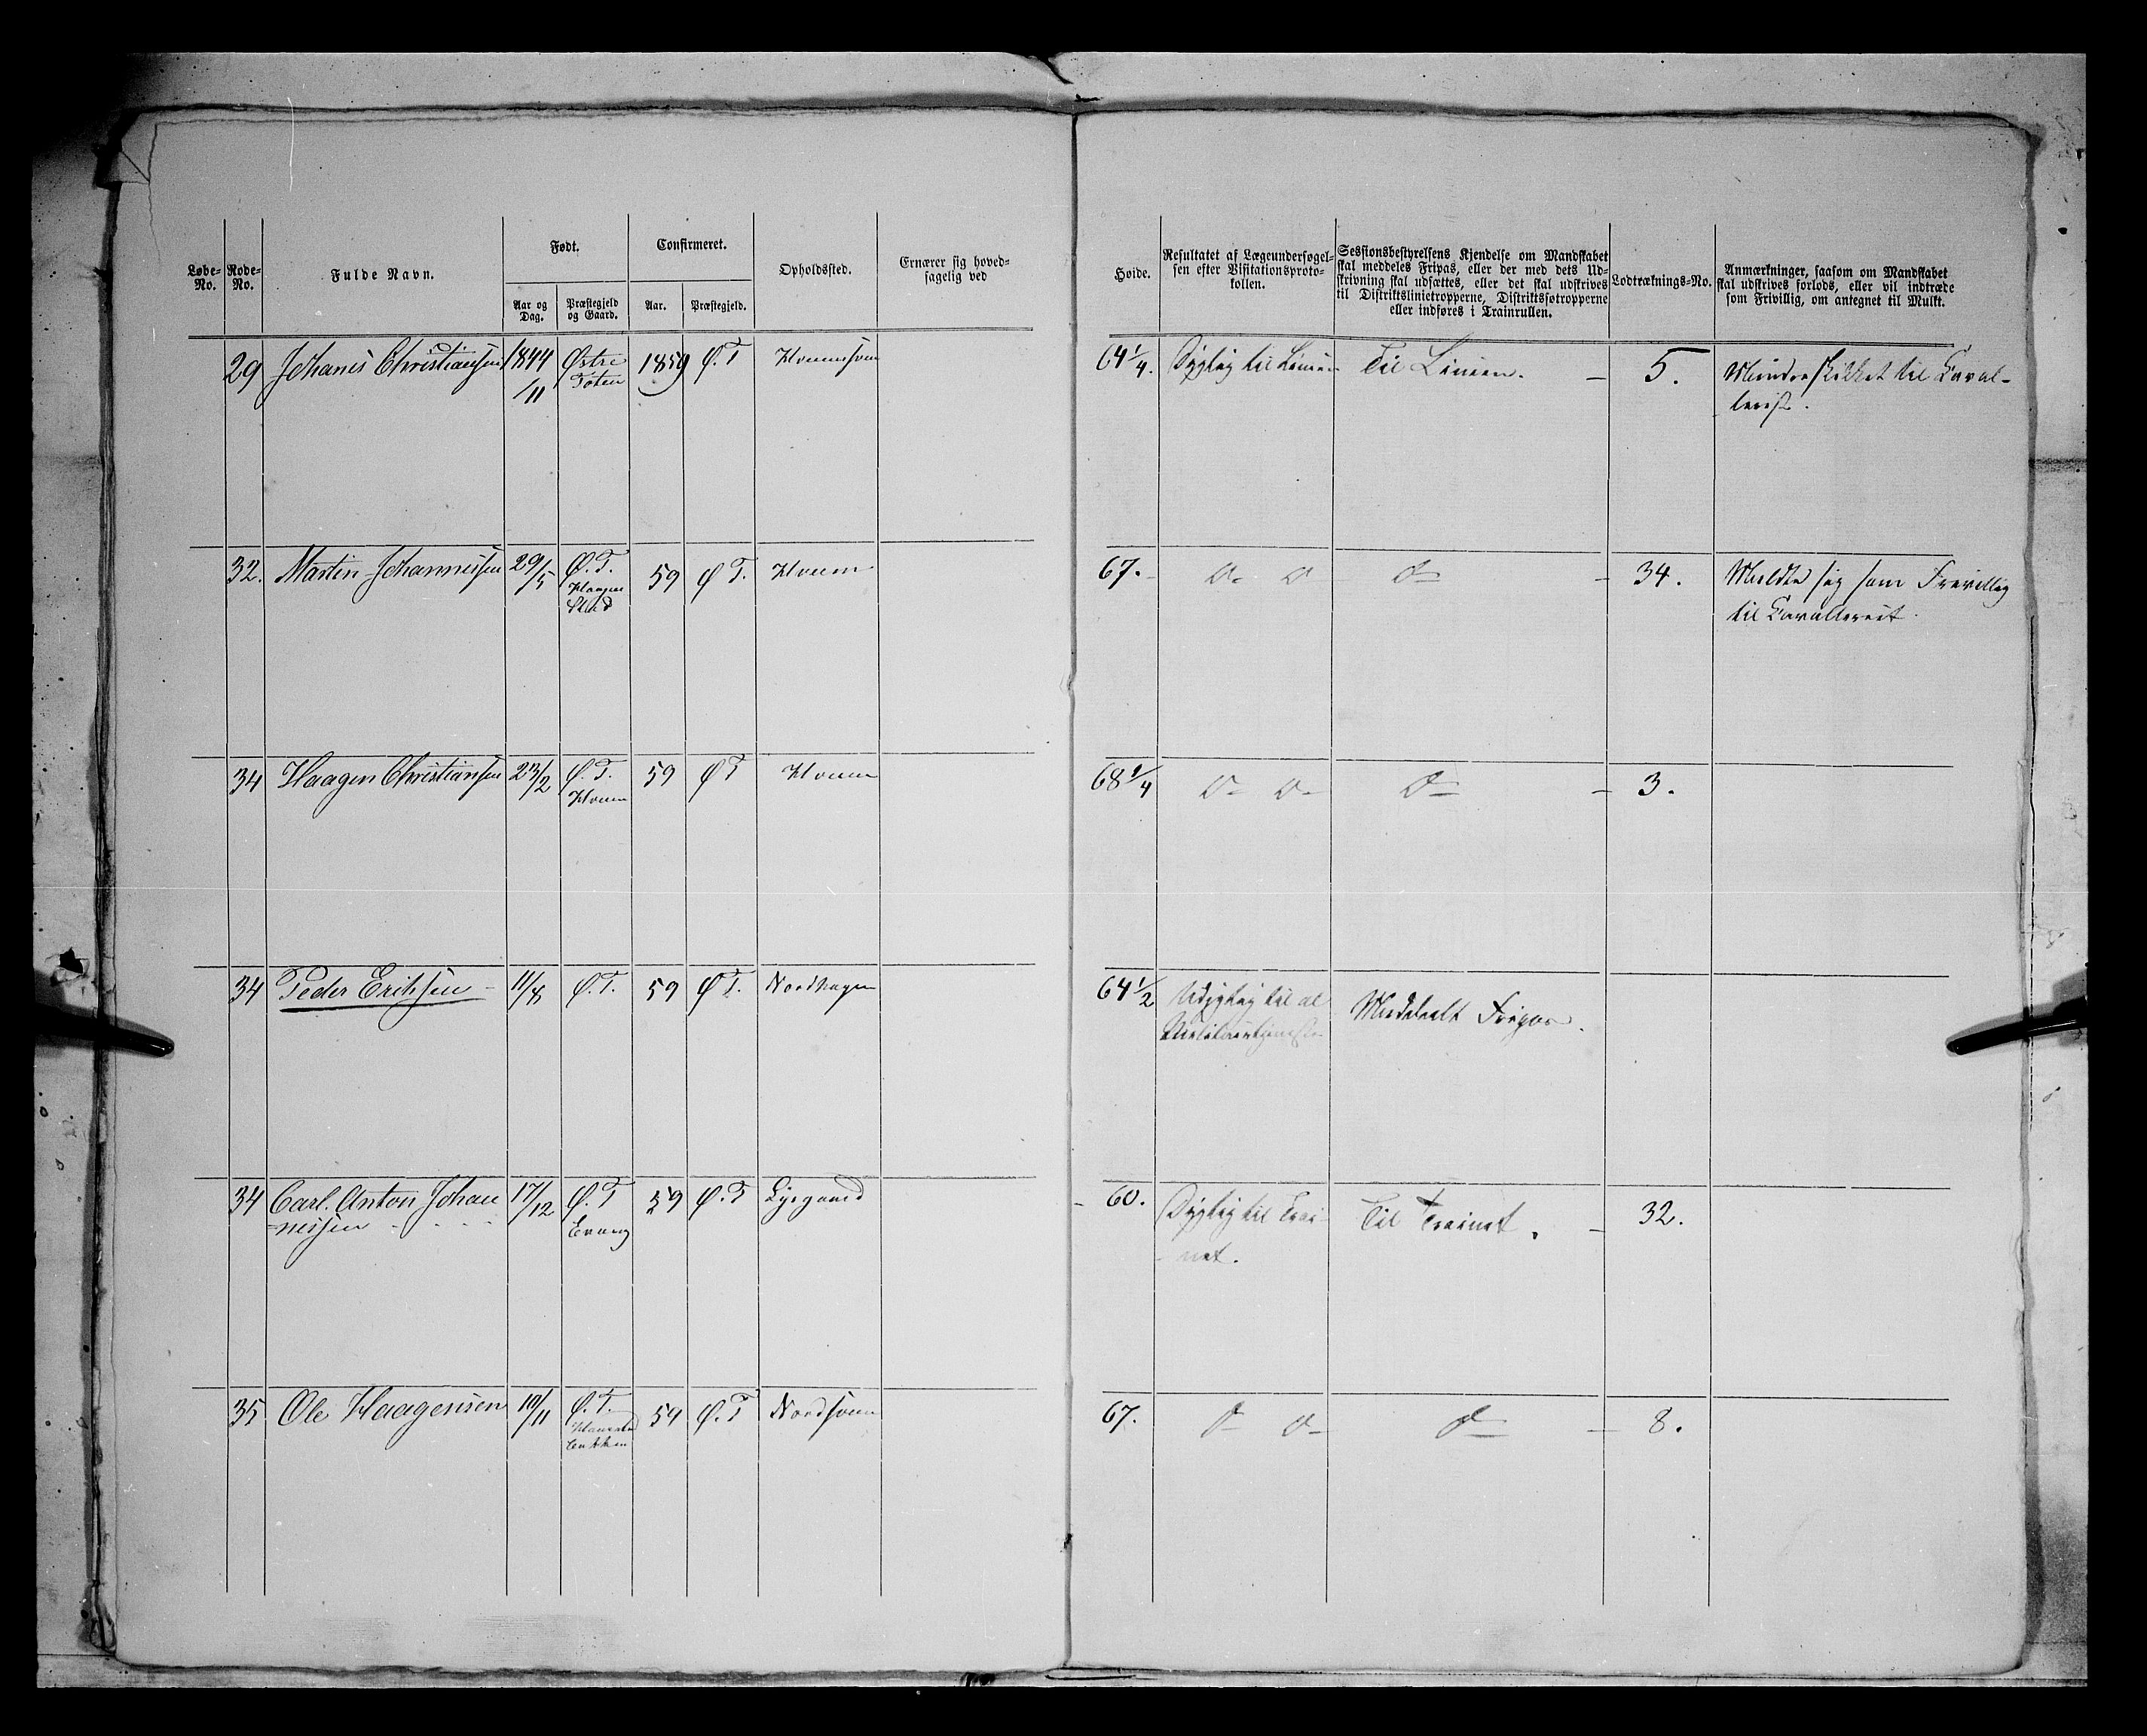 Løbe-No.
Rode-No.
Fulde Navn.
Født.
Aar og Dag.
Præstegjeld og Gaard.
Confirmeret.
Aar.
Præstegjeld.
Opholdssted.
Ernærer sig hoved-
sagelig ved
Høide.
Resultatet af Lægeundersøgel-
sen efter Visitationsproto-
kollen.
Sessionsbestyrelsens Kjendelse om Mandskabet
skal meddeles Fripas, eller der med dets Ud-
skrivning skal udsættes, eller det skal udskrives
til Distriktslinietropperne, Distriktsføtropperne
eller indføres i Trainrullen.
Lodtræknings-No.
Anmærkninger, saasom om Mandskabet
skal udskrives forlods, eller vil indtræde
som Frivillig, om antegnet til Mulkt.
29 Johanis Christiansen 1844 Østre 1859 Ø.T 64 1/4. Dygtig til Linien Til Linien. – 5. Mindre skikket til Caval-
/11 Toten lerist.
32. Martin Johannissen 29/5 Ø.T. 59 Ø T. Hveem 67. D– D D– – 34. Meldte sig som Frivillig
til Cavalleriet.
34 Haagen Christiansen 23/2 Ø.T. 59 Ø T Hveem 68 1/4 D– D– D– – 3.
Hveem
34 Peder Eriksen – 11/8 Ø.T. 59 Ø T. Nordhagen 64 1/2 Udygtig til al Meddeelt Fripas.
Militairtjeneste
34 Carl. Anton Johan 17/12 Ø.T 59 Ø.T Lysgaard 60. Dygtig til Trai- Til Trainet. – 32.
=nissen net.
35 Ole Haagensen 10/11 Ø.T. 59 Ø.T 67. D– D– D– – 8.